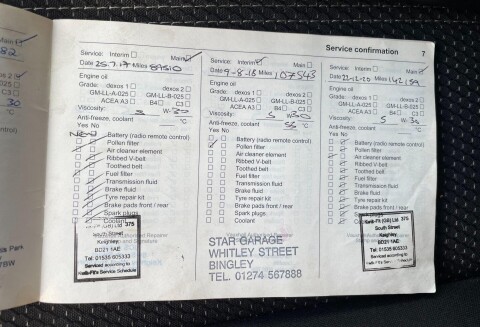 Service confirmation 7
Service: Interim Main
Date 25.7.17 Miles 89510
Engine oil
Grade: dexos 1 dexos 2
GM-LL-A-025 GM-LL-B-025
ACEA A3 B4 C3
Viscosity: 5 W-30 °C
Anti-freeze, coolant
Yes No
New Battery (radio remote control)
Pollen filter
Air cleaner element
Ribbed V-belt
Toothed belt
Fuel filter
Transmission fluid
Brake fluid
Tyre repair kit
Brake pads front / rear
Spark plugs
Coolant
Kwik-Fit (GB) Ltd 375
South Street
Keighley
BD21 1AE
Tel: 01535 605333
Serviced according to
Kwik-Fit's Service Schedule
Service: Interim Main
Date 9-8-18 Miles 107543
Engine oil
Grade: dexos 1 dexos 2
GM-LL-A-025 GM-LL-B-025
ACEA A3 B4 C3
Viscosity: 5 W-30
Anti-freeze, coolant °C
Yes No
Battery (radio remote control)
Pollen filter
Air cleaner element
Ribbed V-belt
Toothed belt
Fuel filter
Transmission fluid
Brake fluid
Tyre repair kit
Brake pads front / rear
Spark plugs
Coolant
STAR GARAGE
WHITLEY STREET
BINGLEY
TEL. 01274 567888
Service: Interim Main
Date 22-12-20 Miles 142159
Engine oil
Grade: dexos 1 dexos 2
GM-LL-A-025 GM-LL-B-025
ACEA A3 B4 C3
Viscosity: 5 W-30
Anti-freeze, coolant °C
Yes No
Battery (radio remote control)
Pollen filter
Air cleaner element
Ribbed V-belt
Toothed belt
Fuel filter
Transmission fluid
Brake fluid
Tyre repair kit
Brake pads front / rear
Spark plugs
Coolant
Kwik-Fit (GB) Ltd 375
South Street
Keighley
BD21 1AE
Tel: 01535 605333